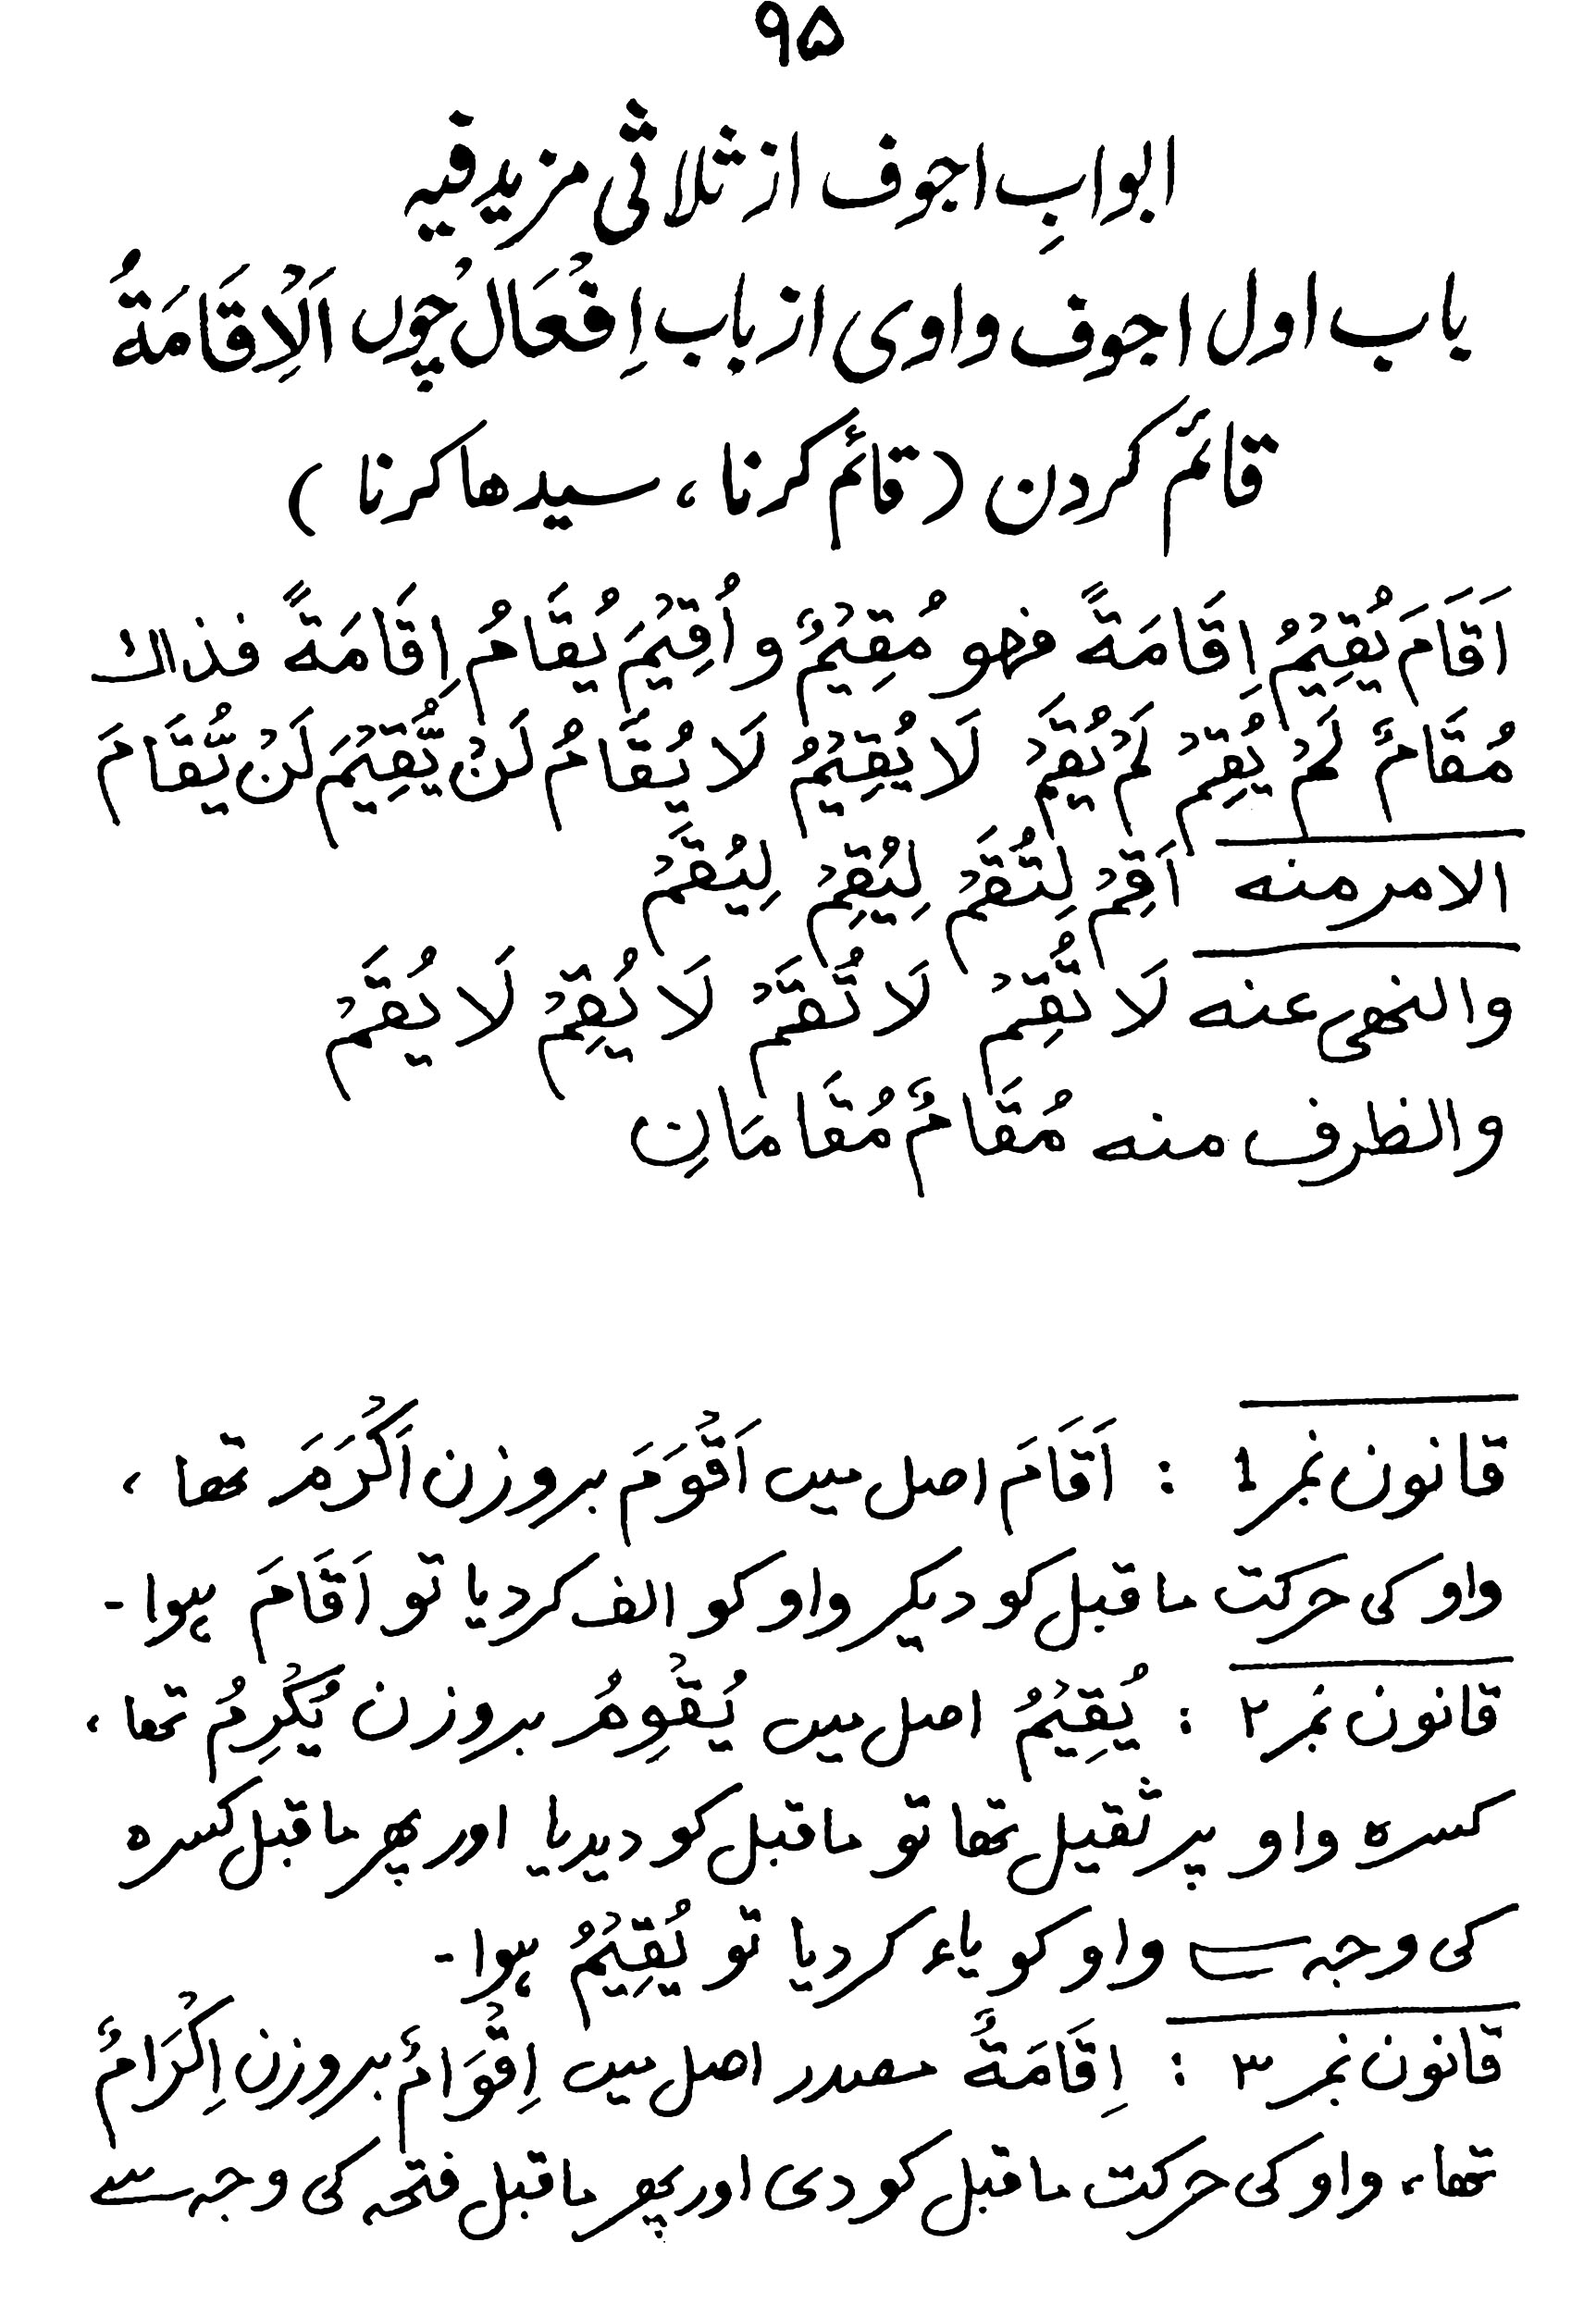 ۹۵
ابوابِ اجوف از ثلاثی مزید فیہ
باب اول اجوف واوی از باب اِفْعَالُ چُوں اَلْاِقَامَةُ
قائم کردن (قائم کرنا، سیدھا کرنا)
اَقَامَ يُقِيْمُ اِقَامَةً فهو مُقِيْمٌ و اُقِيْمَ يُقَامُ اِقَامَةً فذاك
مُقَامٌ لَمْ يُقِمْ لَمْ يُقَمْ لَا يُقِيْمُ لَا يُقَامُ لَنْ يُّقِيْمَ لَنْ يُّقَامَ
الامر منه اَقِمْ لِتُقَمْ لِيُقِمْ لِيُقَمْ
والنهى عنه لَا تُقِمْ لَا تُقَمْ لَا يُقِمْ لَا يُقَمْ
والظرف منه مُقَامٌ مُقَامَانِ
قانون نمبر 1 : اَقَامَ اصل میں اَقْوَمَ بروزن اَكْرَمَ تھا،
واو کی حرکت ماقبل کو دیکر واو کو الف کر دیا تو اَقَامَ ہوا۔
قانون نمبر ۲ : يُقِيْمُ اصل میں يُقْوِمُ بروزن يُكْرِمُ تھا،
کسرہ واو پر ثقیل تھا تو ماقبل کو دیدیا اور پھر ماقبل کسرہ
کی وجہ سے واو کو یاء کر دیا تو يُقِيْمُ ہوا۔
قانون نمبر ۳ : اِقَامَةٌ مصدر اصل میں اِقْوَامٌ بروزن اِكْرَامٌ
تھا، واو کی حرکت ماقبل کو دی اور پھر ماقبل فتحہ کی وجہ سے